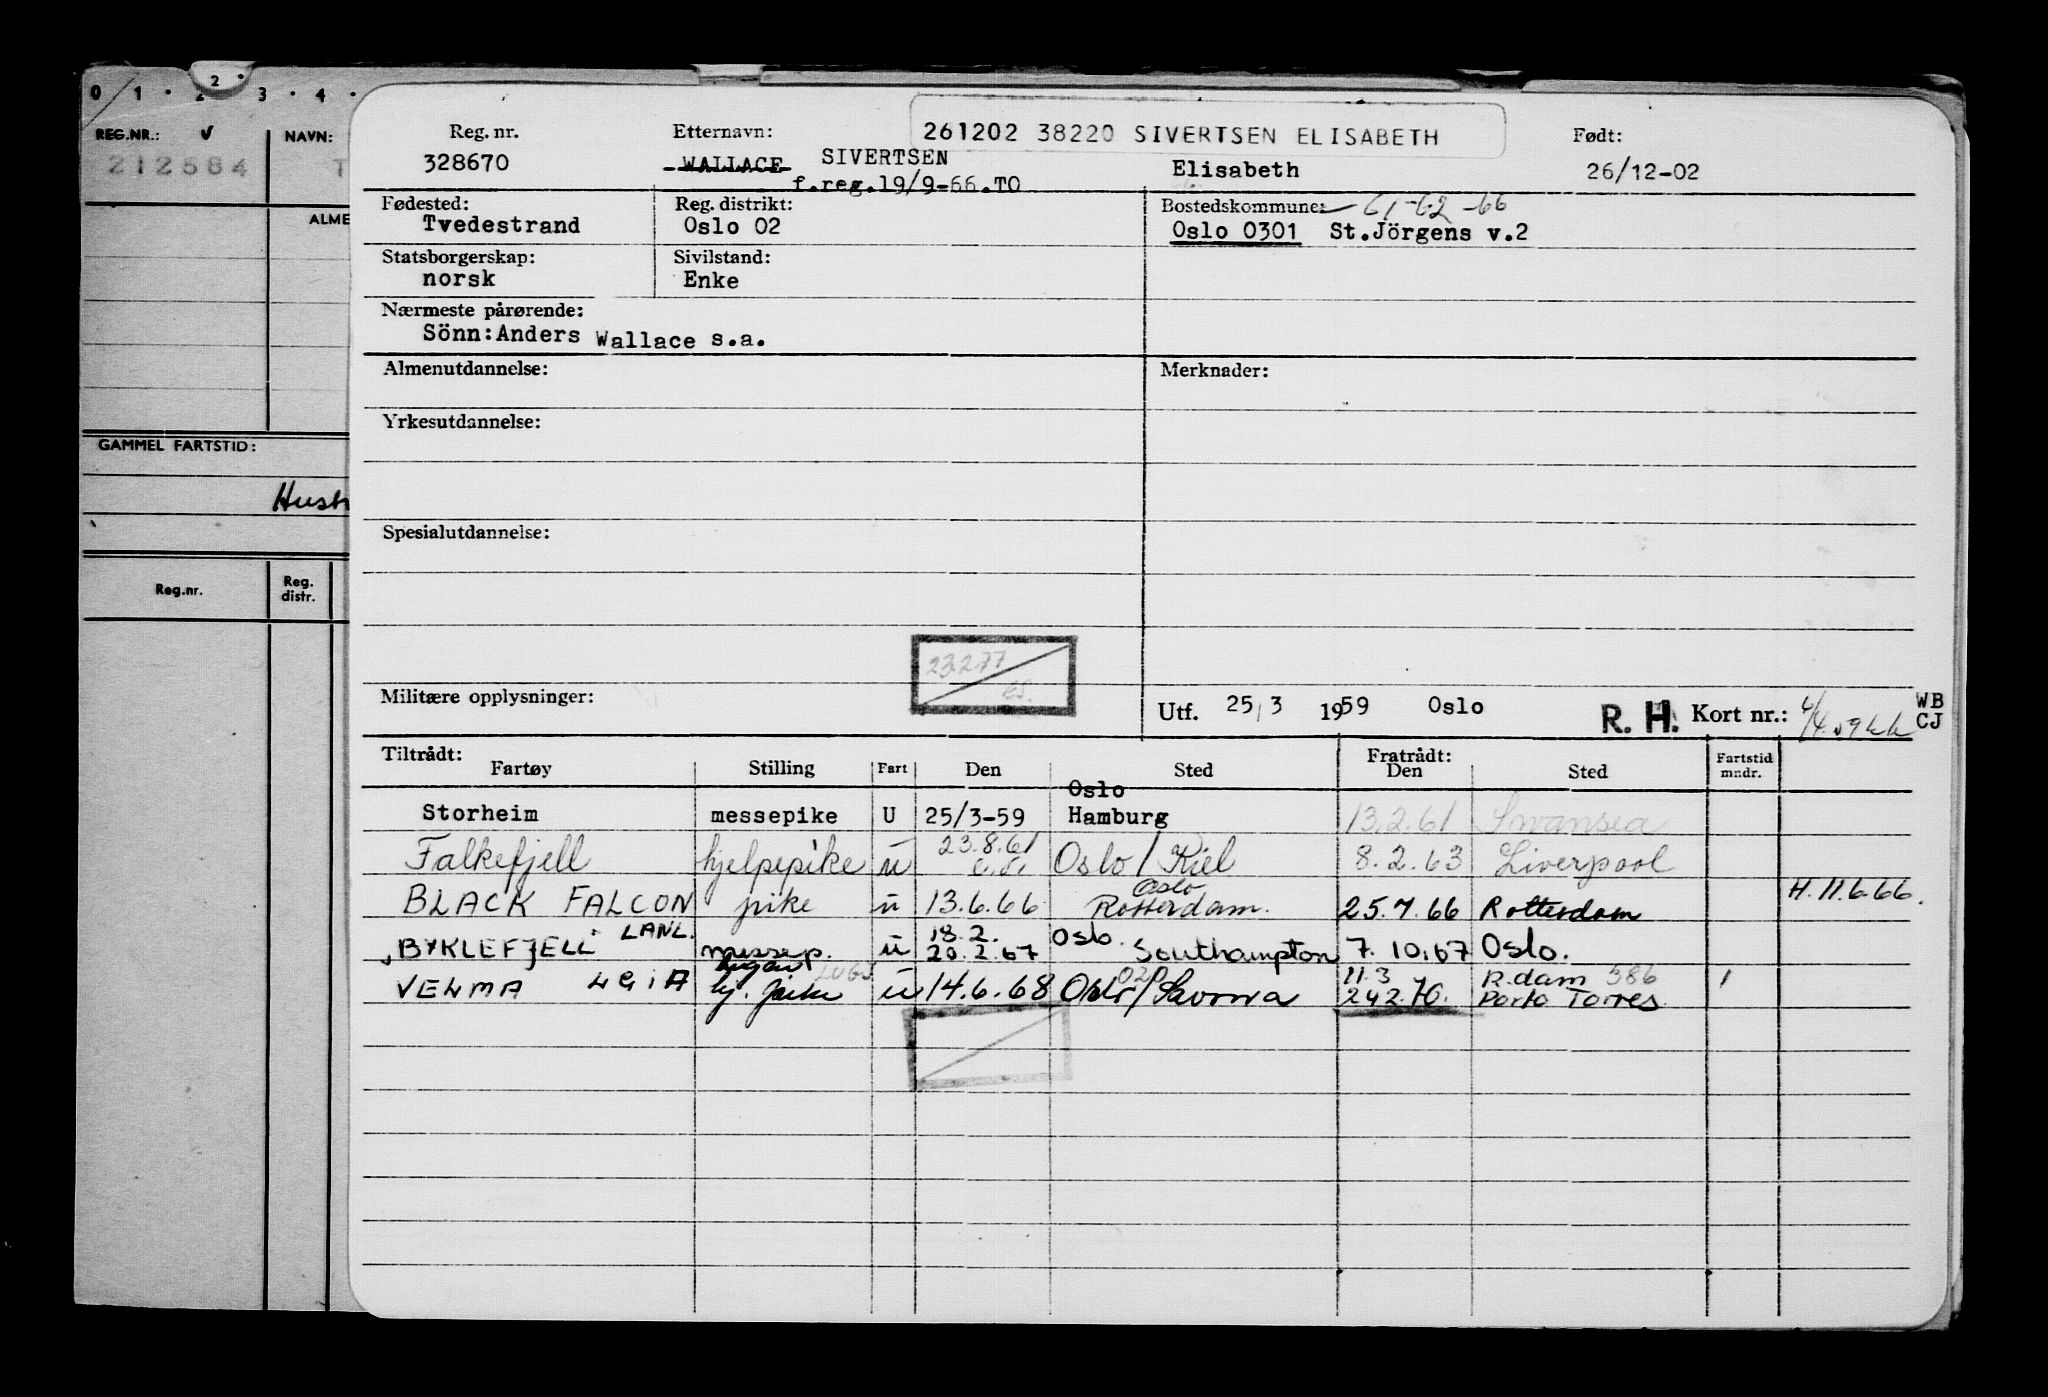 0 1 · 2 2 · 3 · 4 ·
REG.NR.: v NAVN:
212584 T
ALME
GAMMEL FARTSTID:
Hust
Reg.nr. Reg. distr.
Reg. nr. Etternavn: 261202 38220 SIVERTSEN ELISABETH Født:
328670 WALLACE SIVERTSEN Elisabeth 26/12-02
f.reg.19/9-66.TO
Fødested: Reg. distrikt: Bostedskommune: 61-62-66
Tvedestrand Oslo 02 Oslo 0301 St.Jörgens v.2
Statsborgerskap: Sivilstand:
norsk Enke
Nærmeste pårørende:
Sönn:Anders Wallace s.a.
Almenutdannelse: Merknader:
Yrkesutdannelse:
Spesialutdannelse:
23.2.77
Militære opplysninger: Utf. 25/3 1959 Oslo R. H. Kort nr.: WB
CJ
Tiltrådt: Fratrådt:
Fartøy Stilling Fart Den Sted Den Sted Fartstid mndr.
Oslo
Storheim messepike U 25/3-59 Hamburg 13.2.61 Swansea
Falkefjell hjelpepike u 23.8.61 Oslo/Kiel 8.2.63 Liverpool
Oslo
BLACK FALCON pike u 13.6.66 Rotterdam. 25.7.66 Rotterdam H. 11.6.66.
LANL. 18.2. Oslo.
BYKLEFJELL messep. u 20.2.67 Southampton 7.10.67 Oslo.
020 11.3 R.dam 586
VELMA LGIA hj. pike u 14.6.68 Oslo/Savona 242.70. Porto Torres 1